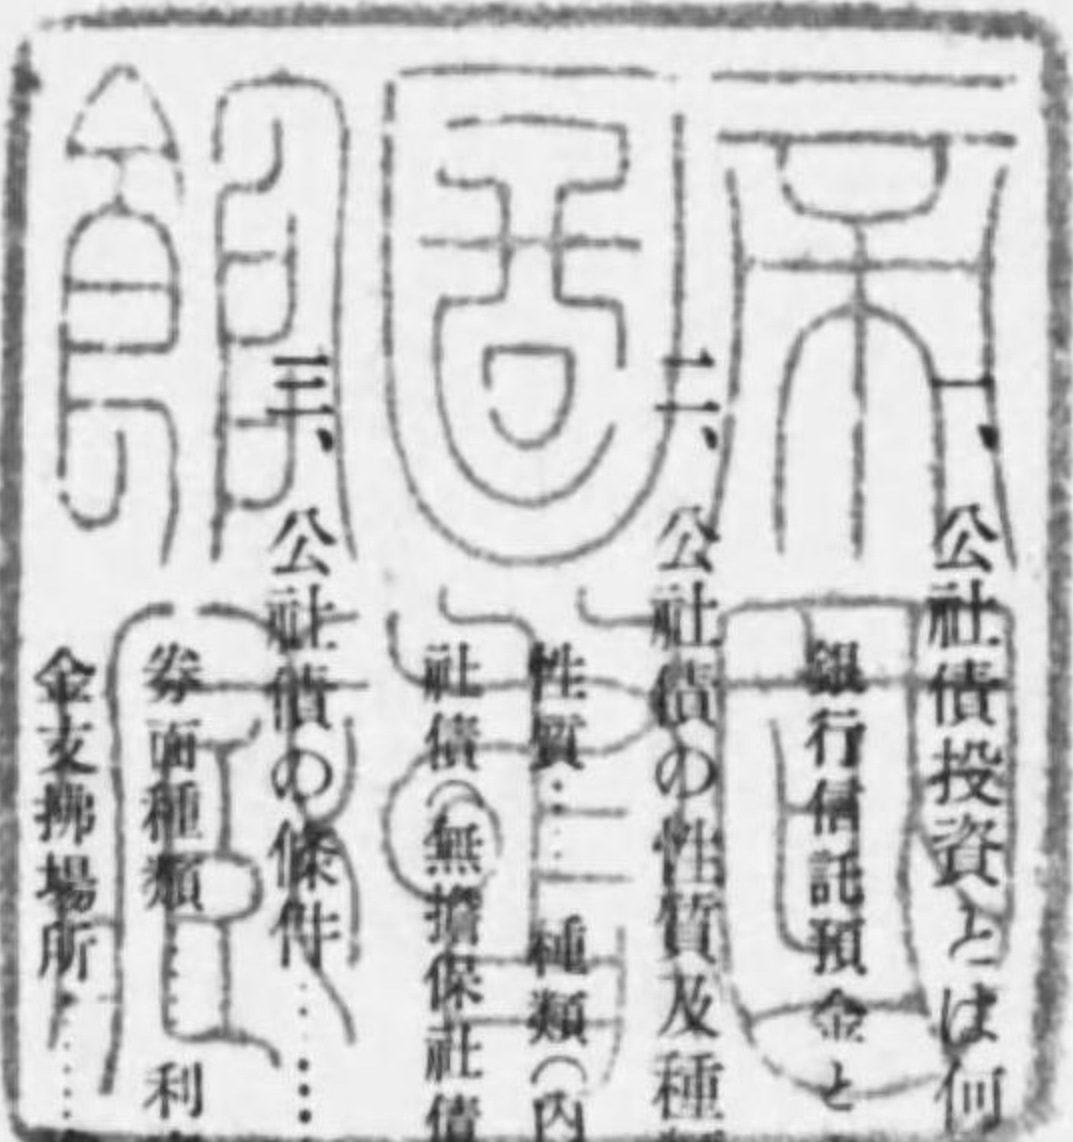 一、公社債投資とは何
銀行信託預金と
二、公社債の性質及種
性質……種類(內
社債(無擔保社債
三、公社債の條件……
券面種類 利
金支拂場所……
帝國
圖書
館藏